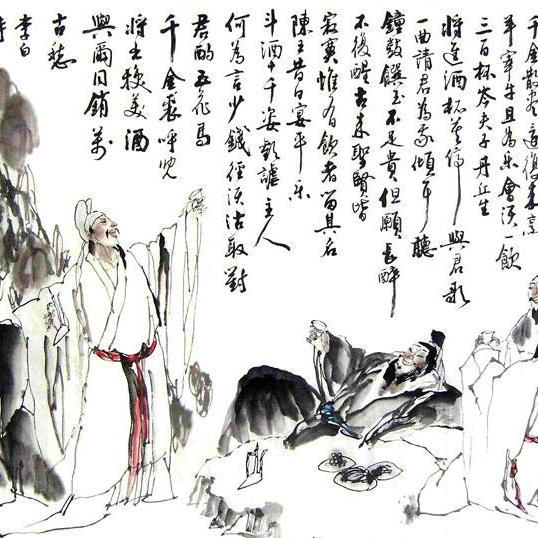 千金散尽還復来烹
羊宰牛且為樂會須一飲
三百杯岑夫子丹丘生
將進酒杯莫停與君歌
一曲請君為我傾耳聽
鐘鼓饌玉不足貴但願長醉
不復醒古来聖賢皆
寂寞惟有飲者留其名
陳王昔日宴平樂
斗酒十千姿歡謔主人
何為言少錢徑須沽取對
君酌五花馬
千金裘呼兒
將出換美酒
與爾同銷萬
古愁
李白